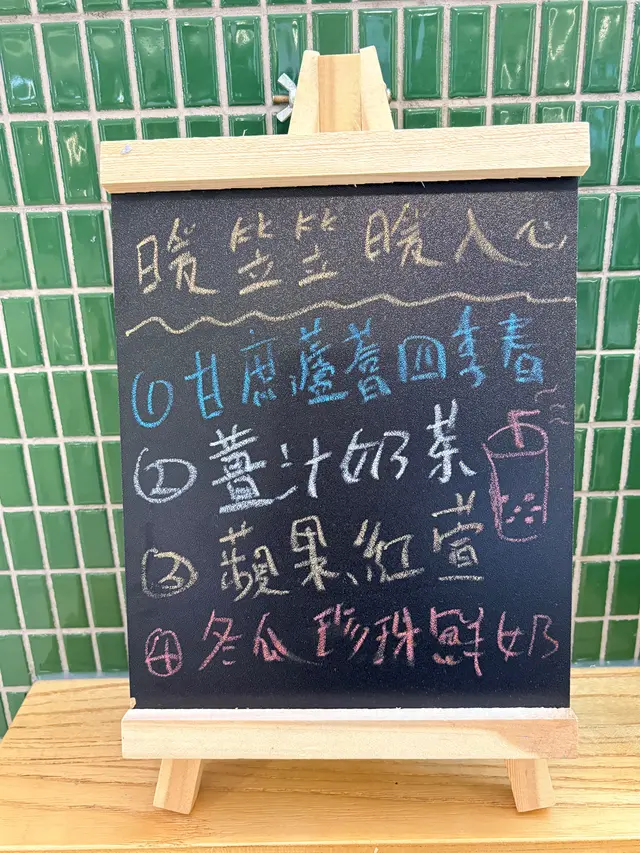 暖竺竺暖入心
①甘蔗蘆薈四季春
②薑汁奶茶
③蘋果紅萱
④冬瓜珍珠鮮奶